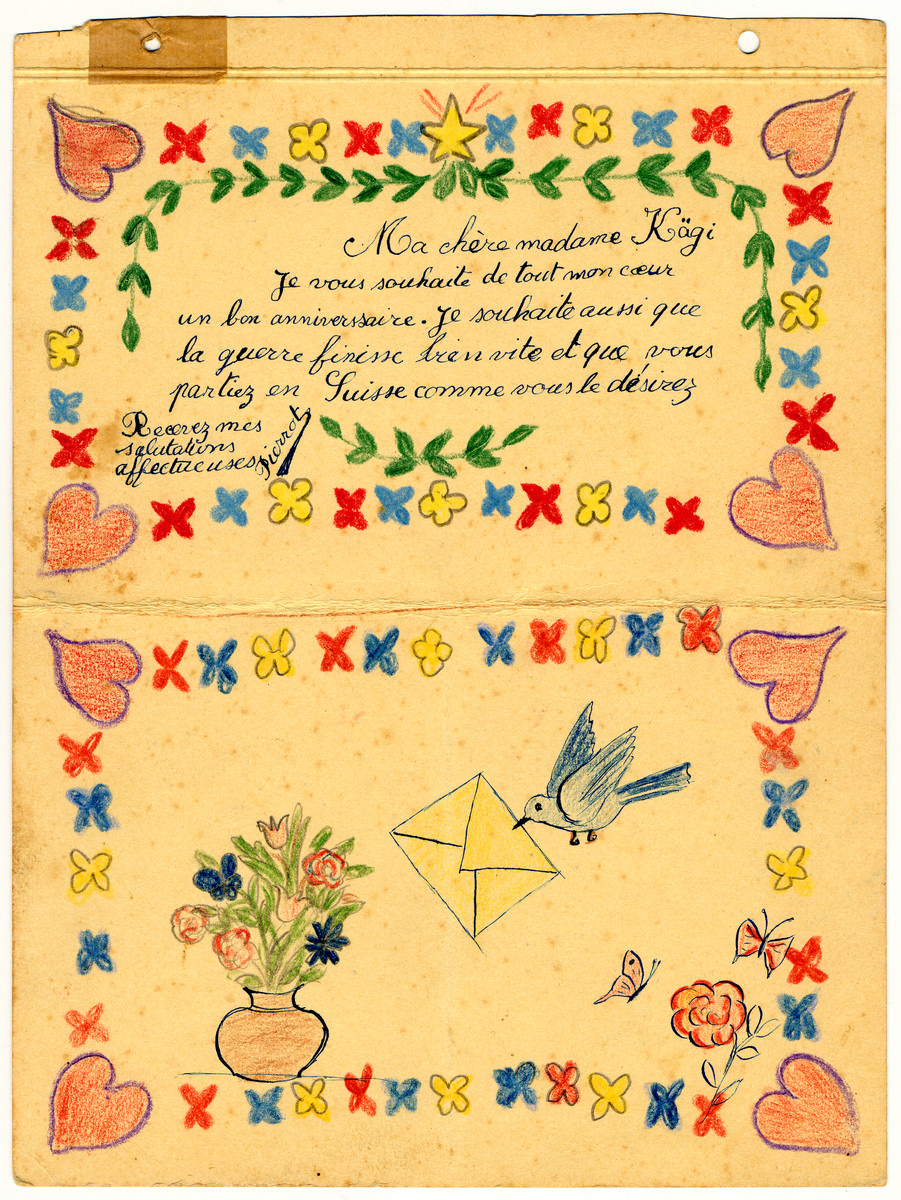 Ma chère madame Kägi
Je vous souhaite de tout mon cœur
un bon anniverssaire. Je souhaite aussi que
la guerre finisse bien vite et que vous
partiez en Suisse comme vous le désirez
Recevez mes
salutations
affectueuses
Pierrot